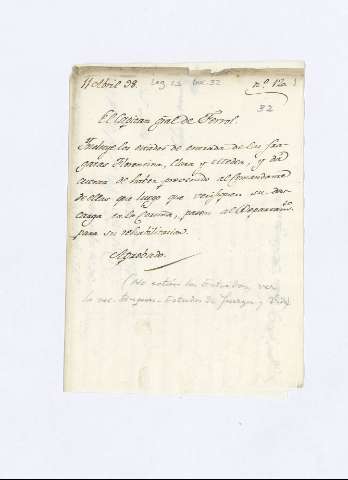 11 Abril 98. Leg 13 32 nº 120
32
El Capitan gral de Ferrol.
Incluye los estados de entrada de las fra-
gatas Florentina, Clara y Medea, y dá
cuenta de haber prevenido al Comandante
de ellas que luego que verifiquen su des-
carga en la Coruña, pasen al Departamto
para su rehabilitacion.
Aprobado.
(No están los Estados, ver
la sec. Buques - Estados de fuerza y vida)